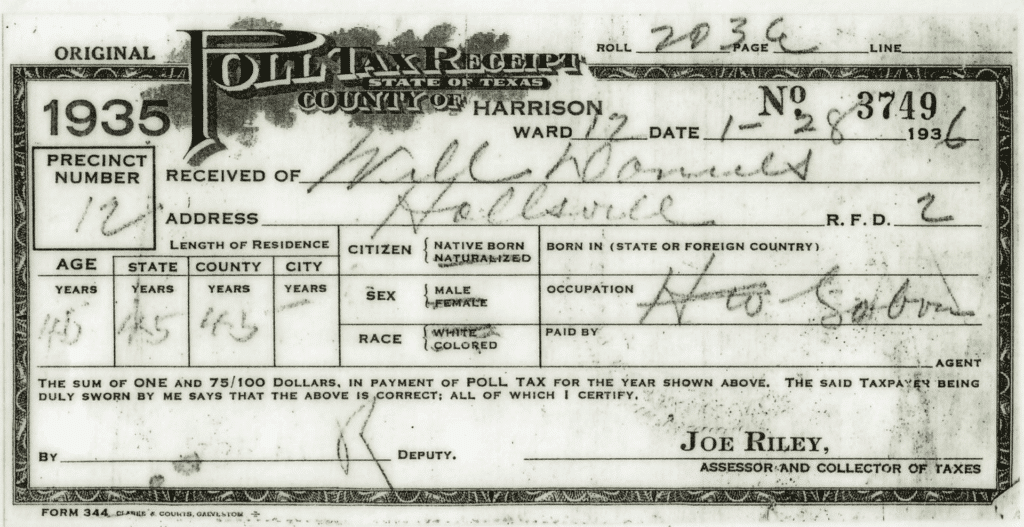 ORIGINAL
POLL TAX RECEIPT
ROLL 2036 PAGE LINE
STATE OF TEXAS
1935
COUNTY OF HARRISON
No 3749
WARD 12 DATE 1-28 1936
PRECINCT NUMBER
12
RECEIVED OF Will Daniels
ADDRESS Hallsvill R.F.D. 2
LENGTH OF RESIDENCE
CITIZEN { NATIVE BORN
NATURALIZED
BORN IN (STATE OR FOREIGN COUNTRY)
AGE STATE COUNTY CITY
YEARS YEARS YEARS YEARS
45 45 45 -
SEX { MALE
FEMALE
OCCUPATION
RACE { WHITE
COLORED
PAID BY
AGENT
THE SUM OF ONE AND 75/100 DOLLARS, IN PAYMENT OF POLL TAX FOR THE YEAR SHOWN ABOVE. THE SAID TAXPAYER BEING
DULY SWORN BY ME SAYS THAT THE ABOVE IS CORRECT; ALL OF WHICH I CERTIFY.
BY R DEPUTY.
JOE RILEY,
ASSESSOR AND COLLECTOR OF TAXES
FORM 344 CLARKE & COURTS, GALVESTON